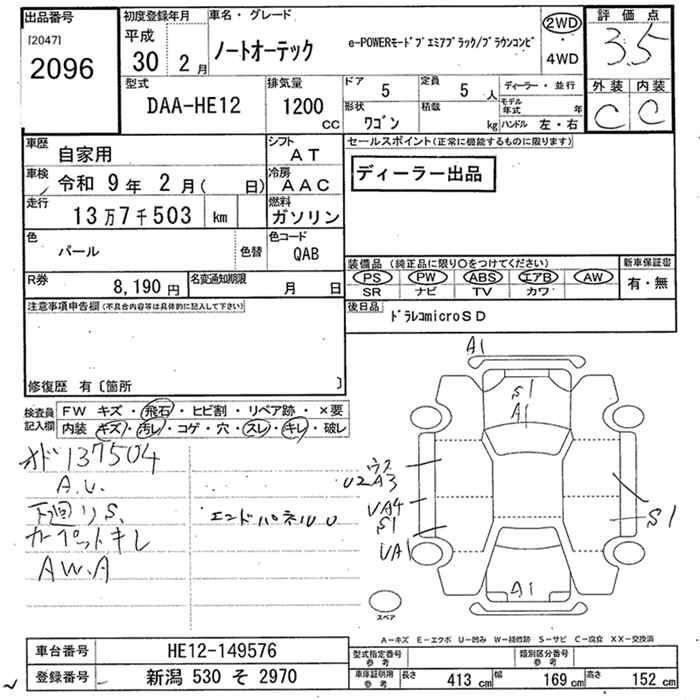 出品番号
[2047]
2096
初度登録年月
平成
30 2月
車名・グレード
ノートオーテック
e-POWERモードプエミアブラック/ブラウンコンビ
2WD
・
4WD
評価点
3.5
外装 内装
C C
型式
DAA-HE12
排気量
1200
cc
ドア
5
定員
5 人
形状
ワゴン
積載
kg
ディーラー・並行
モデル年式 年
ハンドル 左・右
車歴
自家用
シフト
AT
車検 令和 9年 2月( 日)
冷房
AAC
走行
13万7千503 km
燃料
ガソリン
色
パール
色替
色コード
QAB
R券
8,190円
名変通知期限
月 日
セールスポイント(正常に機能するものに限ります)
ディーラー出品
装備品(純正品に限り○をつけてください)
PS PW ABS エアB AW
SR ナビ TV カワ
新車保証書
有・無
後日品
ドラレコmicroSD
注意事項申告欄(不具合内容等は具体的に記入して下さい)
修復歴 有〔箇所 〕
検査員
記入欄
FW キズ・飛石・ヒビ割・リペア跡・×要
内装・キズ・汚レ・コゲ・穴・スレ・キレ・破レ
オド137504
A.U.
下廻りS.
カーペットキレ
AW.A
エンドパネルU
A1
S1
A1
ウス
U2A3
UA4
S1
UA1
S1
A1
スペア
A-キズ E-エクボ U-凹み W-補修跡 S-サビ C-腐食 XX-交換済
車台番号
HE12-149576
登録番号
新潟 530 そ 2970
型式指定番号
参考
類別区分番号
参考
車庫証明用
参考
長さ 413 cm
幅 169 cm
高さ 152 cm